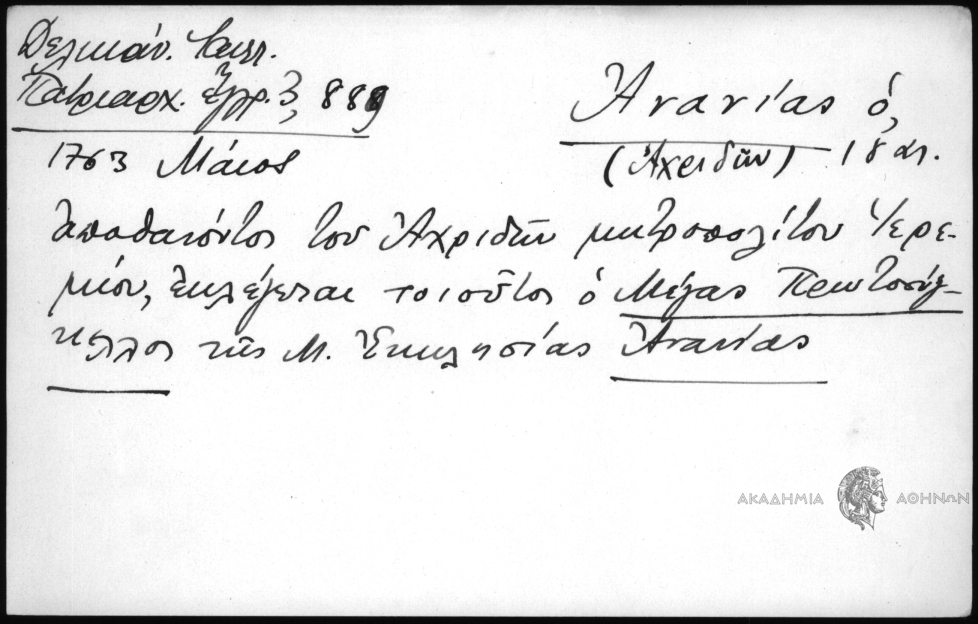 Δελικάν. Καλλ.
Πατριαρχ. ἔγγρ. 3, 889
Ἀνανίας ὁ,
(Ἀχριδῶν) 18 αι.
1763 Μάιος
Ἀποθανόντος τοῦ Ἀχριδῶν μητροπολίτου Ἱερε-
μίου, ἐκλέγεται τοιοῦτος ὁ Μέγας Πρωτοσύγ-
κελλος τῆς Μ. Ἐκκλησίας Ἀνανίας
ΑΚΑΔΗΜΙΑ ΑΘΗΝΩΝ